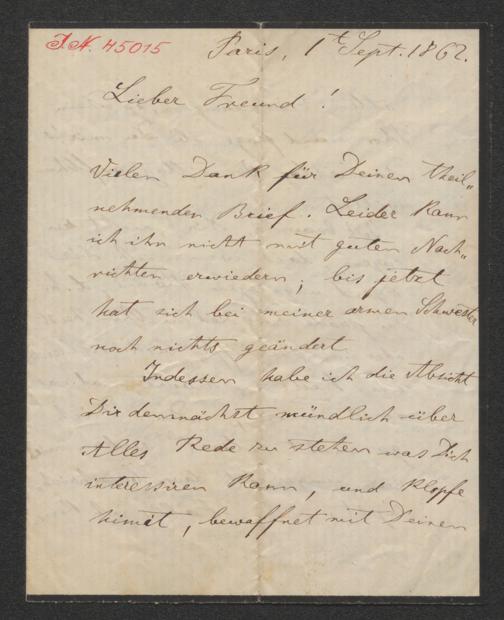 J. N. 45015
Paris, 1t Sept. 1862.
Lieber Freund!
Vielen Dank für Deinen theil„
nehmenden Brief. Leider kann
ich ihn nicht mit guten Nach„
richten erwiedern; bis jetzt
hat sich bei meiner armen Schwester
noch nichts geändert
Indessen habe ich die Absicht
Dir demnächst mündlich über
Alles Rede zu stehen was Dich
interessiren kann, und klopfe
himit, bewaffnet mit Deinem